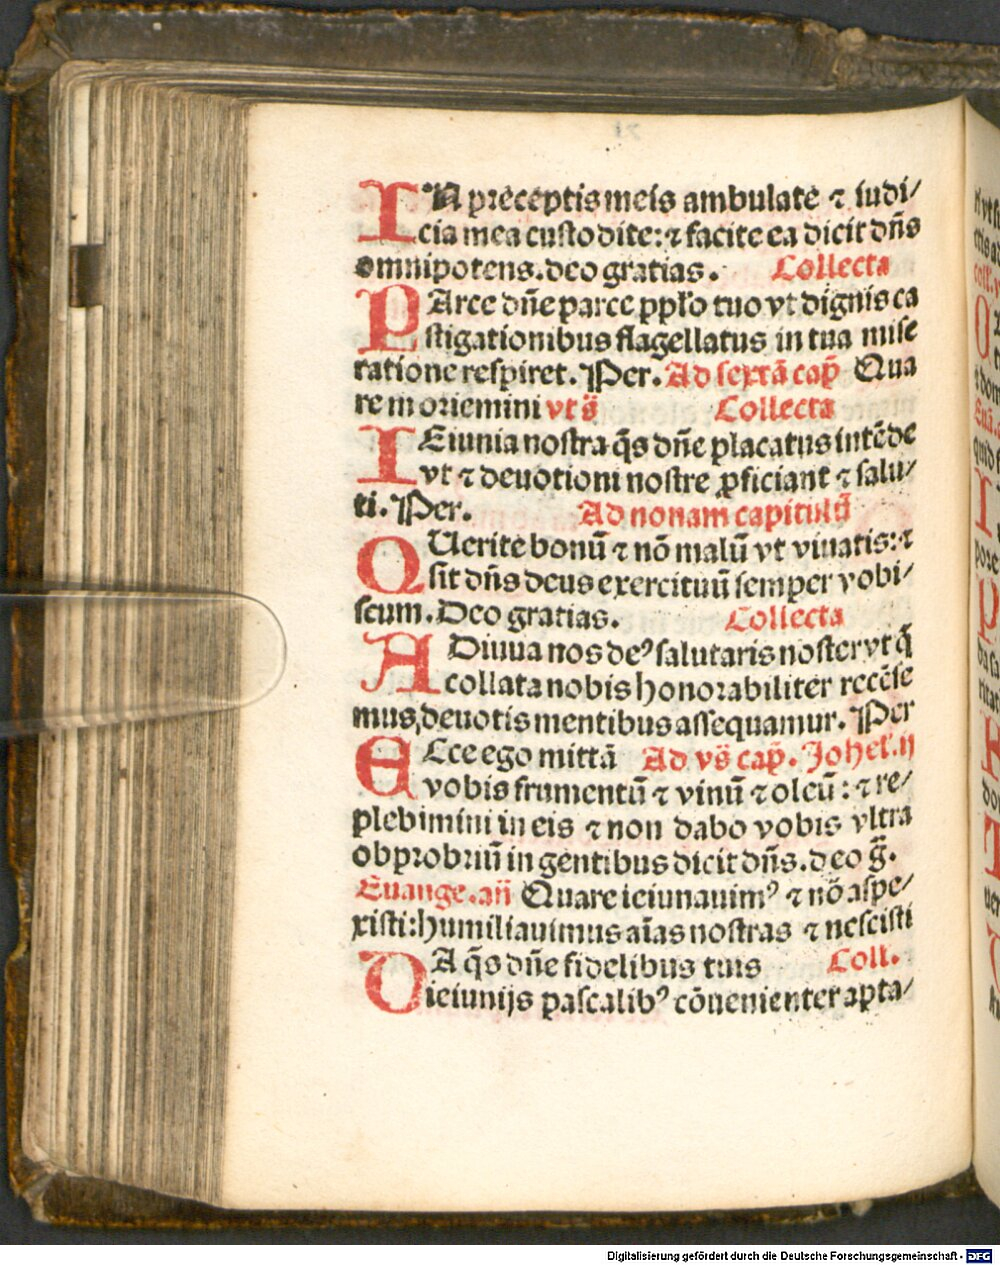 IN preceptis meis ambulate ⁊ iudi/
cia mea custodite: ⁊ facite ea dicit dn̄s
omnipotens. deo gratias. Collecta
PArce dn̄e parce ppl̄o tuo vt dignis ca
stigationibus flagellatus in tua mise
ratione respiret. Per. Ad sextā cap̄ Qua
re moriemini vt s̄ Collecta
IEiunia nostra q̄s dn̄e placatus intēde
vt ⁊ deuotioni nostre ꝓficiant ⁊ salu/
ti. Per. Ad nonam capitulū
QUerite bonū ⁊ nō malū vt viuatis: ⁊
sit dn̄s deus exercituū semper vobi/
scum. Deo gratias. Collecta
ADiuua nos deꝰ salutaris noster vt q̄
collata nobis honorabiliter recēse
mus, deuotis mentibus assequamur. Per
ECce ego mittā Ad vs̄ cap̄. Johel. ij
vobis frumentū ⁊ vinū ⁊ oleū: ⁊ re/
plebimini in eis ⁊ non dabo vobis vltra
obprobriū in gentibus dicit dn̄s. deo ḡ.
Euange. an̄ Quare ieiunauimꝰ ⁊ nō aspe/
xisti: humiliauimus aīas nostras ⁊ nescisti
DA q̄s dn̄e fidelibus tuis Coll.
ieiunijs pascalibꝰ cōuenienter apta/
Digitalisierung gefördert durch die Deutsche Forschungsgemeinschaft - DFG